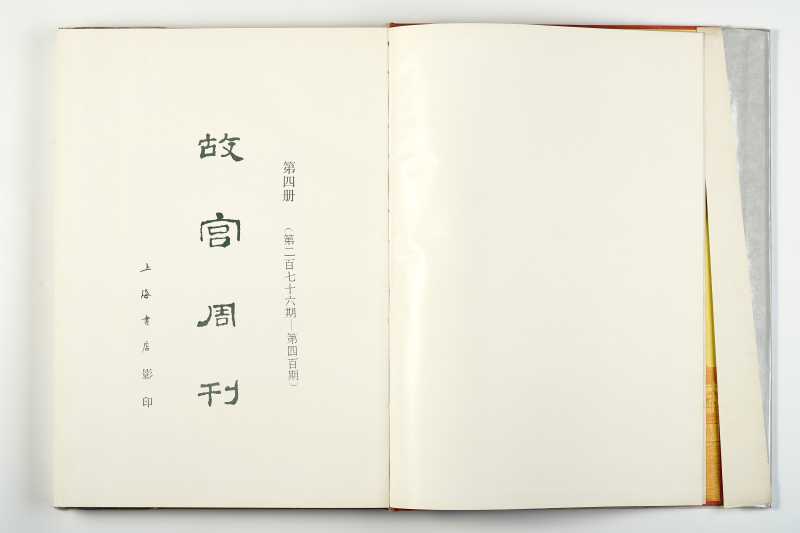 第四册
（第二百七十六期—第四百期）
故宫周刊
上海书店影印